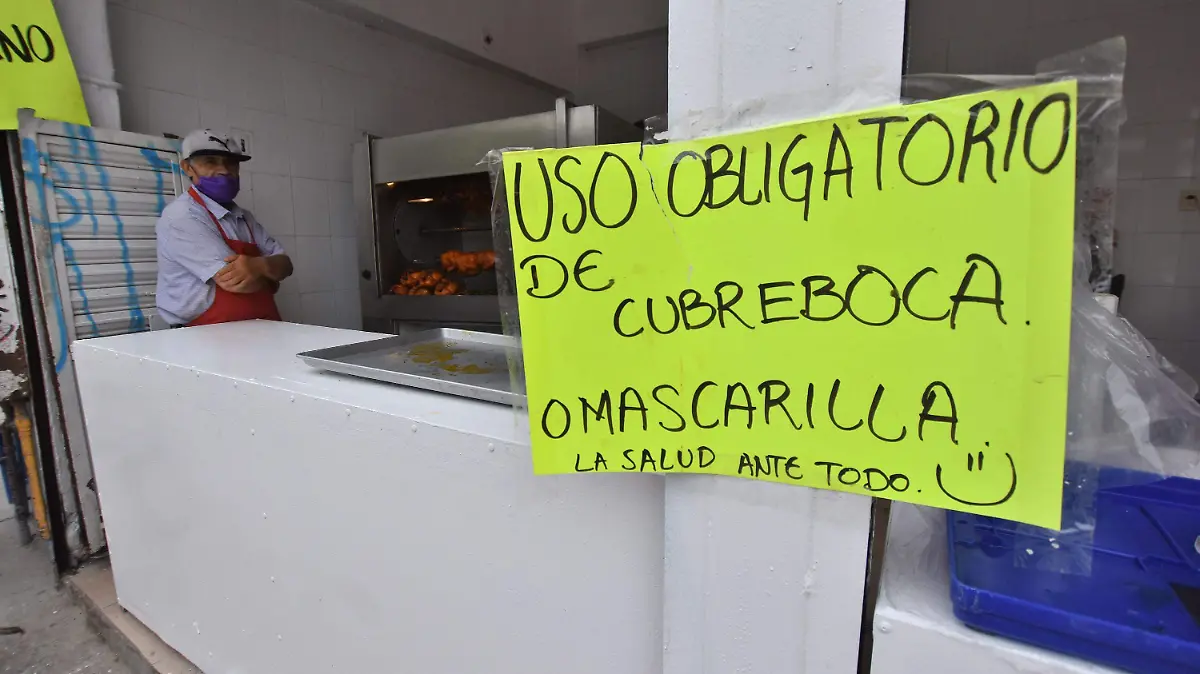 NO
USO OBLIGATORIO
DE CUBREBOCA.
O MASCARILLA.
LA SALUD ANTE TODO.